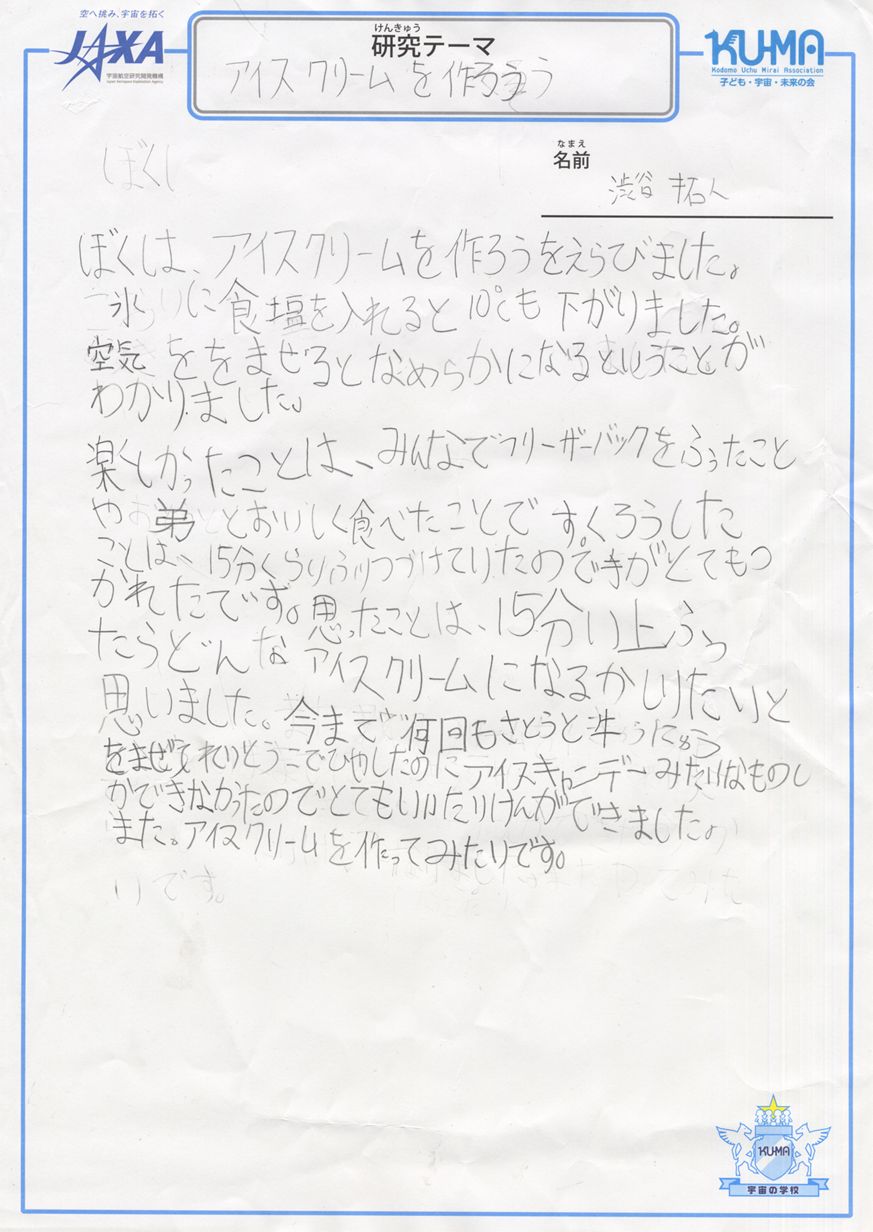 空へ挑み、宇宙を拓く
JAXA
宇宙航空研究開発機構
Japan Aerospace Exploration Agency
けんきゅう
研究テーマ
アイスクリームを作ろう
KU-MA
Kodomo Uchu Mirai Association
子ども・宇宙・未来の会
ぼくし
なまえ
名前
渋谷 拓人
ぼくは、アイスクリームを作ろうをえらびました。
氷に食塩を入れると10℃も下がりました。
空気ををまぜるとなめらかになるということが
わかりました。
楽しかったことは、みんなでフリーザーバックをふったこと
や弟とおいしく食べたことです。くろうした
ことは、15分くらいふりつづけていたので手がとてもつ
かれたです。思ったことは、15分い上ふっ
たらどんなアイスクリームになるかしりたいと
思いました。今まで何回もさとうと牛にゅう
をまぜてれいとうこでひやしたのにアイスキャンデーみたいなものし
かできなかったのでとてもいいたいけんができました。
また。アイスクリームを作ってみたいです。
いです。
KU-MA
宇宙の学校